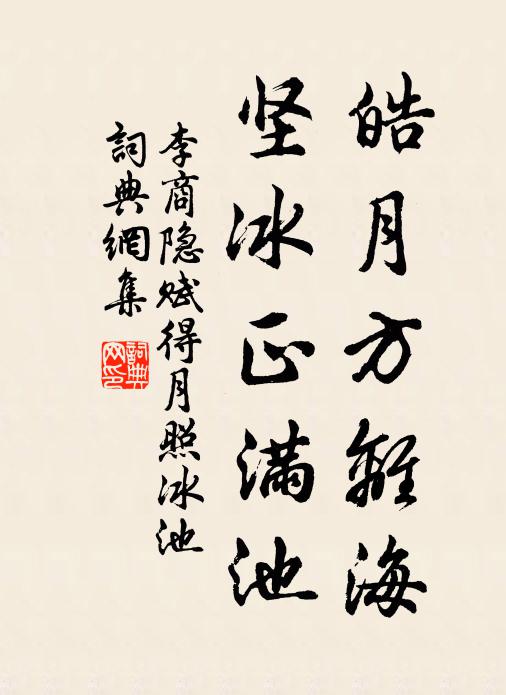 皓月方離海
坚冰正满池
李商隐赋得月照冰池
詞典網集
詞典網印